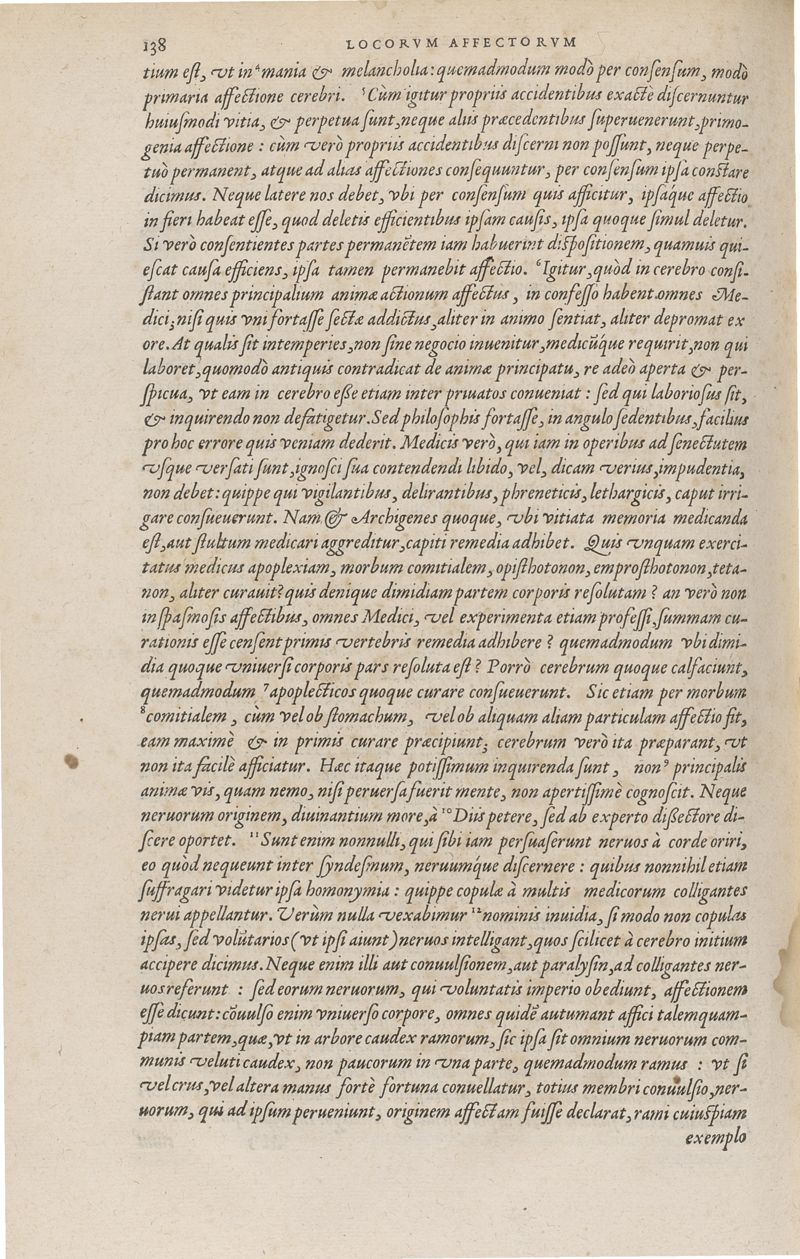 138 LOCORVM AFFECTORVM
tium est, vt in ⁴mania & melancholia: quemadmodum modò per consensum, modò
primaria affectione cerebri. ⁵Cùm igitur propriis accidentibus exactè discernuntur
huiusmodi vitia, & perpetua sunt, neque aliis præcedentibus superuenerunt, primo-
genia affectione : cùm verò propriis accidentibus discerni non possunt, neque perpe-
tuò permanent, atque ad alias affectiones consequuntur, per consensum ipsa constare
dicimus. Neque latere nos debet, vbi per consensum quis afficitur, ipsáque affectio
in fieri habeat esse, quod deletis efficientibus ipsam causis, ipsa quoque simul deletur.
Si verò consentientes partes permanētem iam habuerint dispositionem, quamuis qui-
escat causa efficiens, ipsa tamen permanebit affectio. ⁶Igitur, quòd in cerebro consi-
stant omnes principalium animæ actionum affectus , in confesso habent omnes Me-
dici, nisi quis vni fortasse sectæ addictus, aliter in animo sentiat, aliter depromat ex
ore. At qualis sit intemperies, non sine negocio inuenitur, medicūque requirit, non qui
laboret, quomodò antiquis contradicat de animæ principatu, re adeò aperta & per-
spicua, vt eam in cerebro esse etiam inter priuatos conueniat : sed qui laboriosus sit,
& inquirendo non defatigetur. Sed philosophis fortasse, in angulo sedentibus, facilius
pro hoc errore quis veniam dederit. Medicis verò, qui iam in operibus ad senectutem
vsque versati sunt, ignosci sua contendendi libido, vel, dicam verius, impudentia,
non debet: quippe qui vigilantibus, delirantibus, phreneticis, lethargicis, caput irri-
gare consueuerunt. Nam & Archigenes quoque, vbi vitiata memoria medicanda
est, aut stultum medicari aggreditur, capiti remedia adhibet. Quis vnquam exerci-
tatus medicus apoplexiam, morbum comitialem, opisthotonon, emprosthotonon, teta-
non, aliter curauit? quis denique dimidiam partem corporis resolutam ? an verò non
in spasmosis affectibus, omnes Medici, vel experimenta etiam professi, summam cu-
rationis esse censent primis vertebris remedia adhibere ? quemadmodum vbi dimi-
dia quoque vniuersi corporis pars resoluta est ? Porrò cerebrum quoque calfaciunt,
quemadmodum ⁷apoplecticos quoque curare consueuerunt. Sic etiam per morbum
⁸comitialem , cùm vel ob stomachum, vel ob aliquam aliam particulam affectio fit,
eam maximè & in primis curare præcipiunt, cerebrum verò ita præparant, vt
non ita facilè afficiatur. Hæc itaque potissimum inquirenda sunt , non⁹ principalis
animæ vis, quam nemo, nisi peruersa fuerit mente, non apertissimè cognoscit. Neque
neruorum originem, diuinantium more, à ¹⁰Diis petere, sed ab experto dissectore di-
scere oportet. ¹¹Sunt enim nonnulli, qui sibi iam persuaserunt neruos à corde oriri,
eo quòd nequeunt inter syndesmum, neruumque discernere : quibus nonnihil etiam
suffragari videtur ipsa homonymia : quippe copulæ à multis medicorum colligantes
nerui appellantur. Verùm nulla vexabimur ¹²nominis inuidia, si modo non copulas
ipsas, sed volūtarios (vt ipsi aiunt) neruos intelligant, quos scilicet à cerebro initium
accipere dicimus. Neque enim illi aut conuulsionem, aut paralysin, ad colligantes ner-
uos referunt : sed eorum neruorum, qui voluntatis imperio obediunt, affectionem
esse dicunt: cōuulso enim vniuerso corpore, omnes quidē autumant affici talem quam-
piam partem, quæ, vt in arbore caudex ramorum, sic ipsa sit omnium neruorum com-
munis veluti caudex, non paucorum in vna parte, quemadmodum ramus : vt si
vel crus, vel altera manus fortè fortuna conuellatur, totius membri conuulsio, ner-
uorum, qui ad ipsum perueniunt, originem affectam fuisse declarat, rami cuiuspiam
exemplo